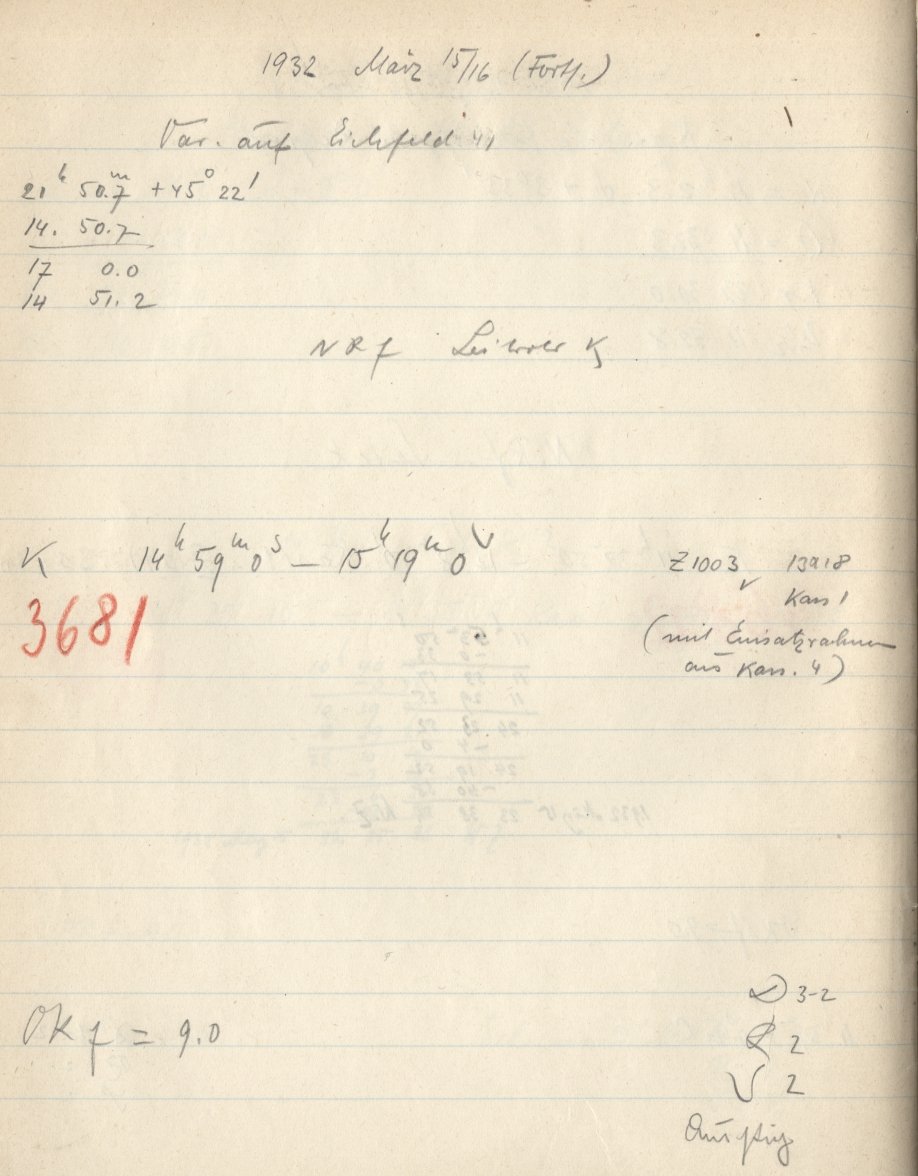 1932 März 15/16 (Forts.)
Var. auf Eichfeld 41
21h 50.7m +45° 22'
14. 50.7
17 0.0
14 51.2
NRf K
K 14h 59m 0s — 15h 19m 0
3681
Z1003 13918
Kass 1
(mit Einsatzrahmen
aus Kass. 4)
OKf = 9.0
D 3-2
R 2
V 2